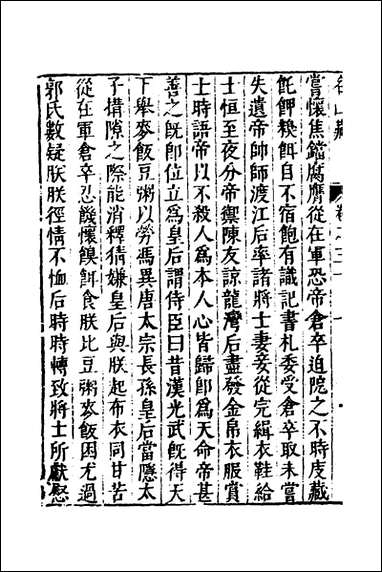 名山藏 卷之三十 一
嘗懷焦鐺腐膺從在軍恐帝倉卒迫阨之不時庋藏
飥糗餌自不宿飽有識記書札委受倉卒取未嘗
失遺帝帥師渡江后率諸將士妻妾從完緝衣鞋給
士恒至夜分帝禦陳友諒龍灣后盡發金帛衣服賞
士時語帝以不殺人爲本人心皆歸卽爲天命帝甚
善之旣卽位立爲皇后謂侍臣曰昔漢光武旣得天
下舉麥飯豆粥以勞馮異唐太宗長孫皇后當隱太
子搆隙之際能消釋猜嫌皇后與朕起布衣同甘苦
從在軍倉卒忍饑懷糗餌食朕比豆粥麥飯困尤過
郭氏數疑朕朕徑情不恤后時時轉致將士所獻慰